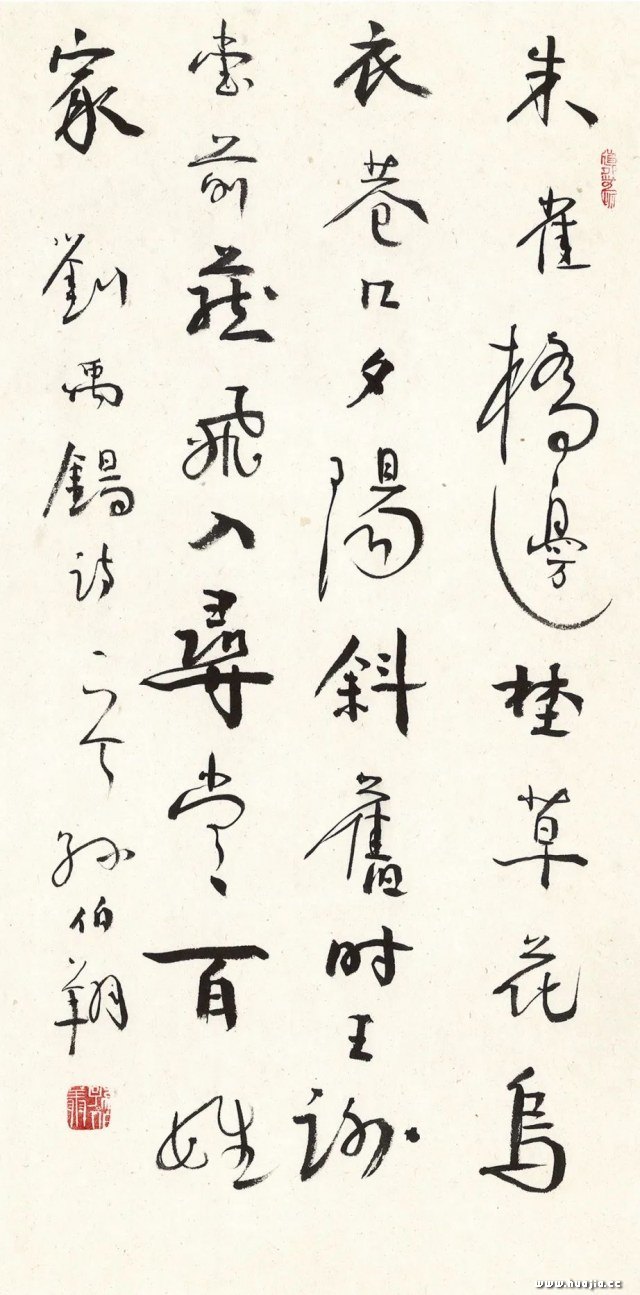 朱雀橋邊埜草花烏
衣巷口夕陽斜舊時王謝
堂前燕飛入尋常百姓
家 劉禹錫詩 孫伯翔
www.huajia.cc